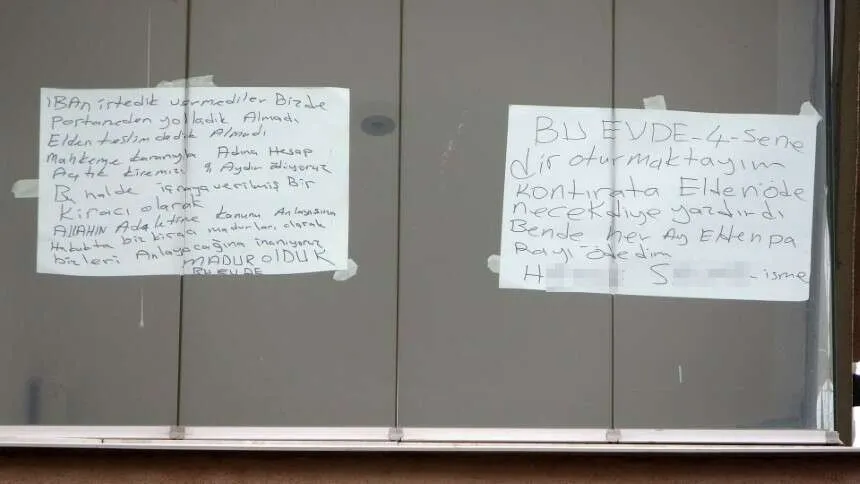 İBAn istedik vermediler Bizde
Postaneden yolladik Almadı
Elden teslim dedik Almadı
Mahkeme kararıyla Adına Hesap
Açtık kiremizi 9 Aydır ödüyoruz
Bu halde icraya verilmiş Bir
kiracı olarak
AllAHIN Adaletine kanunu
Hukukta biz kiracı madurları olarak
bizleri Anlayacağına inanıyoruz
MADUR OlDUK
BU EVDE
BU EVDE-4-Sene
dir oturmaktayım
kontırata Elden öde
necek diye yazdırdı
Bende her Ay Elden pa
Rayı ödedim
H S isme